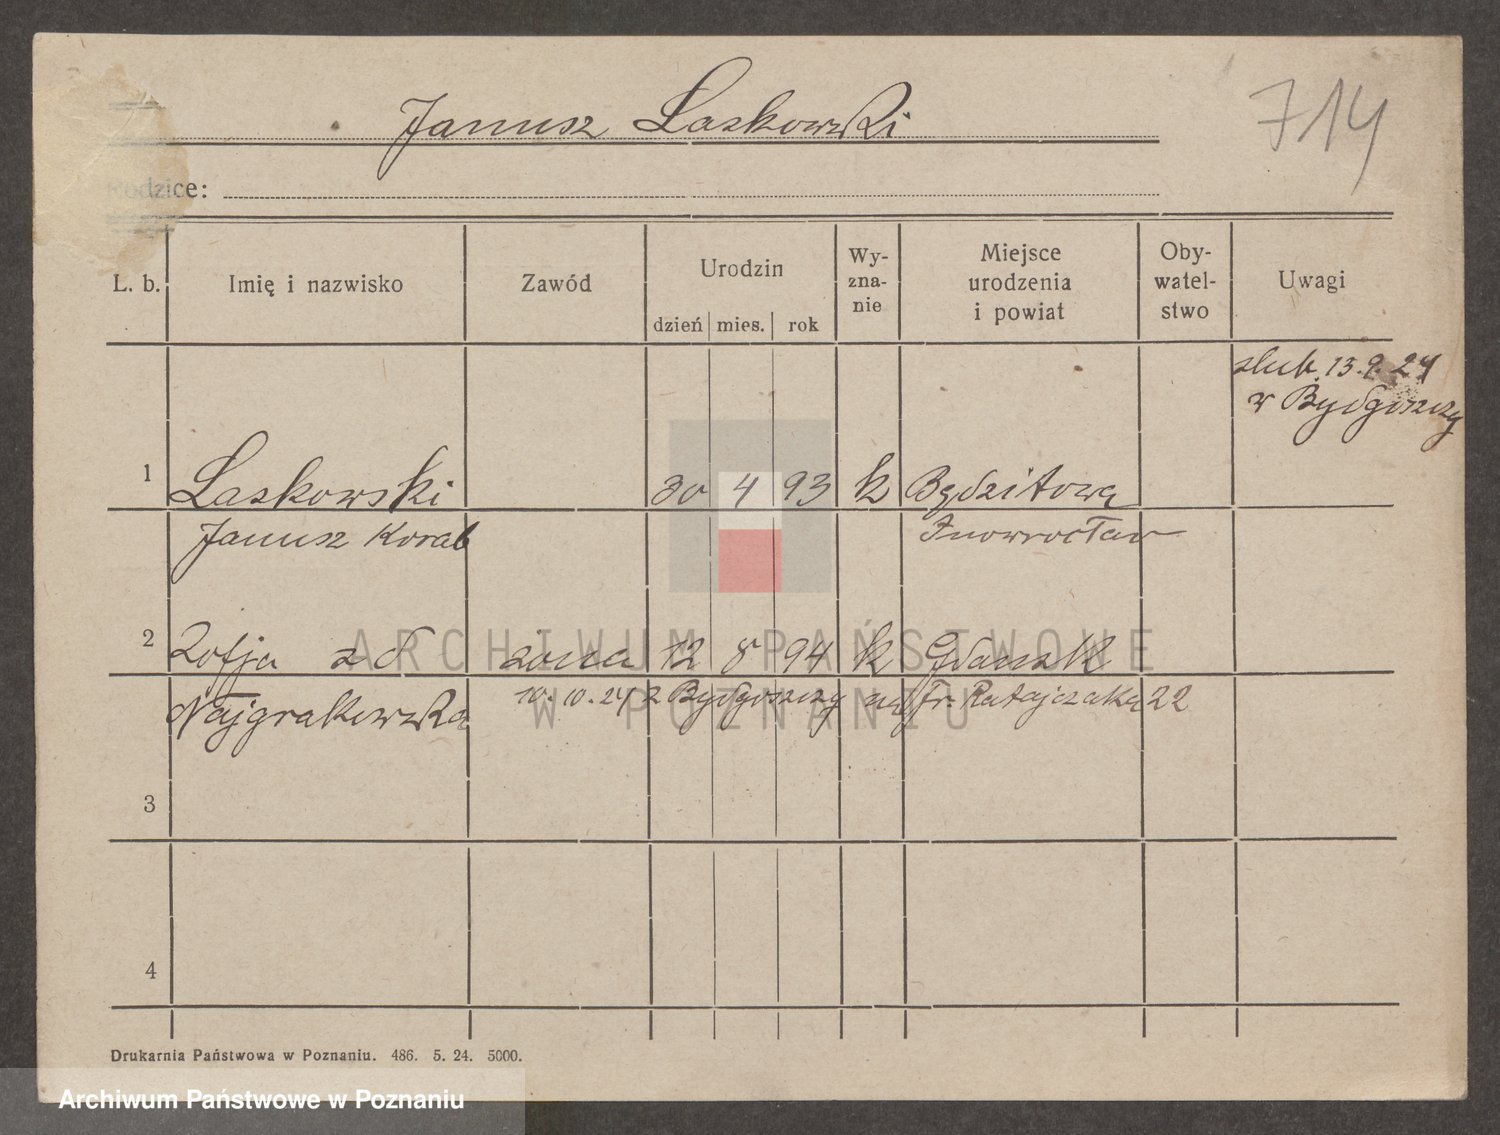 Janusz Laskowski
714
Rodzice:
L. b. Imię i nazwisko Zawód Urodzin dzień mies. rok Wy-zna-nie Miejsce urodzenia i powiat Oby-watel-stwo Uwagi
ślub. 13.9.24
w Bydgoszczy
1 Laskowski 30 4 93 k
Janusz Korab Inowrocław
2 Zofja z d żona 12 8 94 k Gdańsk
Najgrakowska 10.10.24 z Bydgoszczy na Fr. Ratajczaka 22
3
4
Drukarnia Państwowa w Poznaniu. 486. 5. 24. 5000.
ARCHIWUM PAŃSTWOWE
W POZNANIU
Archiwum Państwowe w Poznaniu